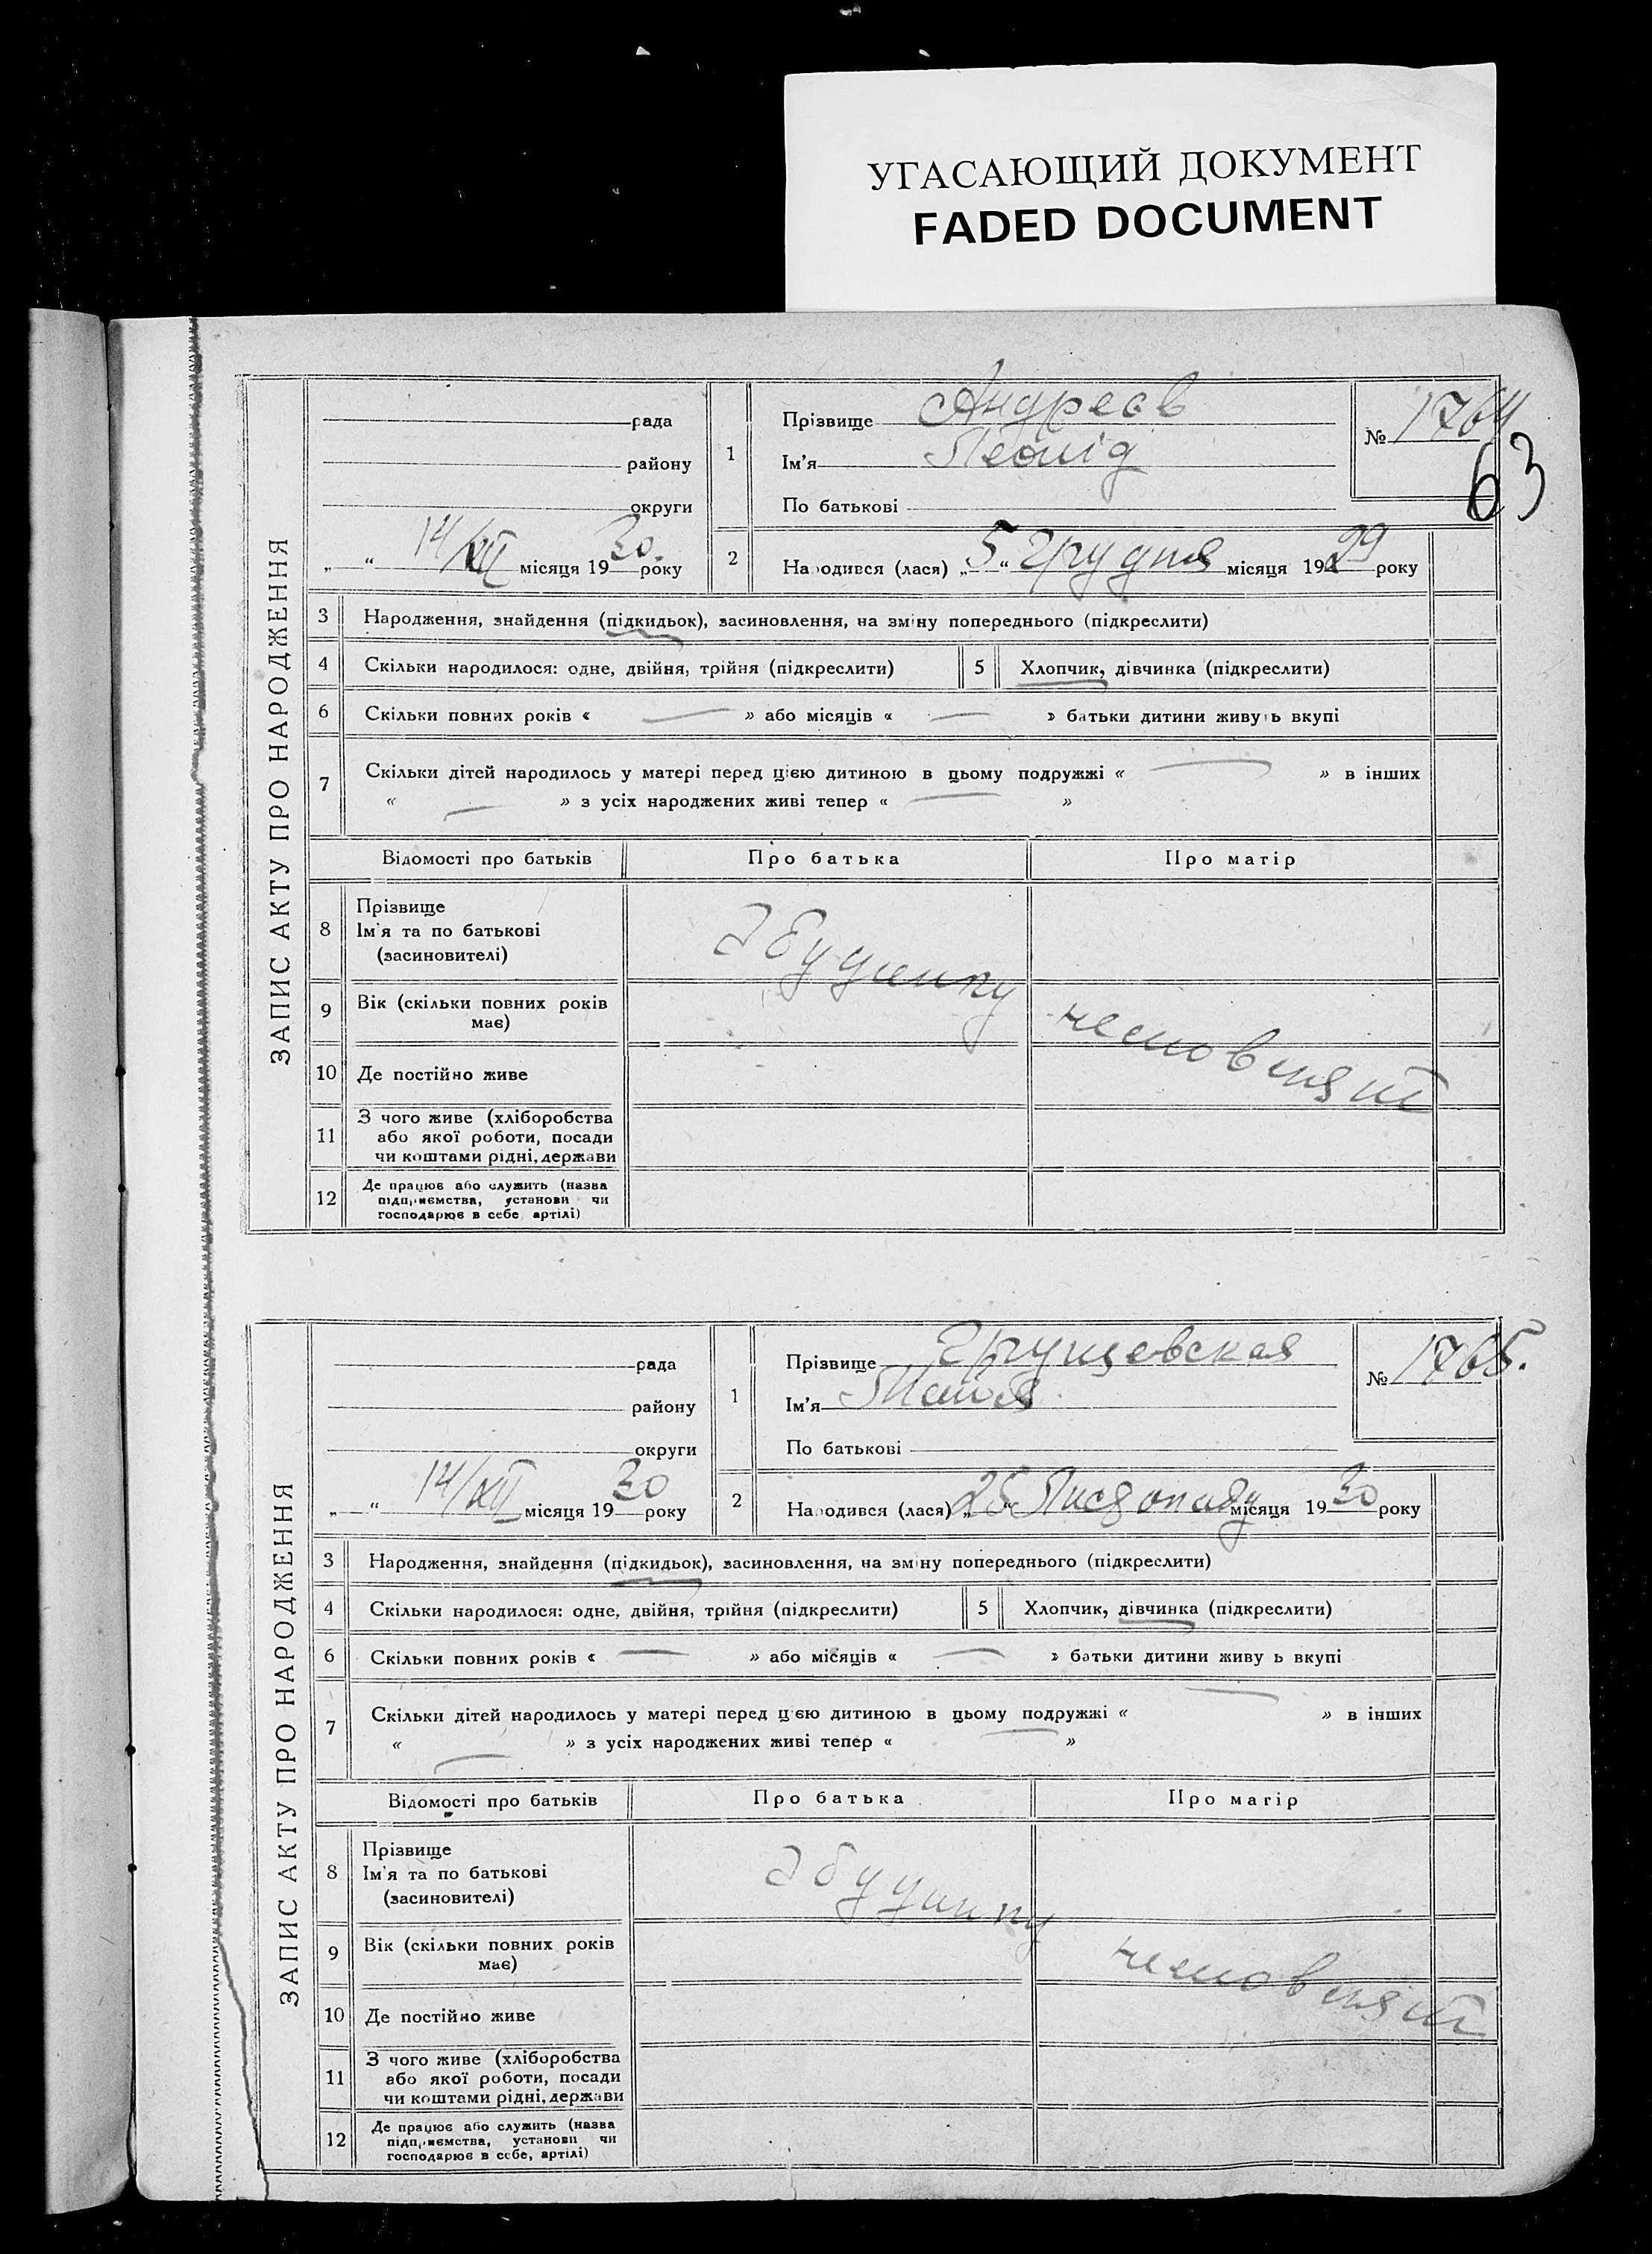 УГАСАЮЩИЙ ДОКУМЕНТ
FADED DOCUMENT
ЗАПИС АКТУ ПРО НАРОДЖЕННЯ
рада
району
округи
„ “ 14/XII місяця 1930. року
1
Прізвище Андреєв
Ім'я Леонід
По батькові
№ 1764
63
2
Народився (лася) „5“ Грудня місяця 1929 року
3 Народження, знайдення (підкидьок), засиновлення, на зміну попереднього (підкреслити)
4 Скільки народилося: одне, двійня, трійня (підкреслити) 5 Хлопчик, дівчинка (підкреслити)
6 Скільки повних років « — » або місяців « — » батьки дитини живуть вкупі
7 Скільки дітей народилось у матері перед цією дитиною в цьому подружжі « — » в інших
« — » з усіх народжених живі тепер « — »
Відомості про батьків Про батька Про матір
8 Прізвище
Ім'я та по батькові
(засиновителі)
9 Вік (скільки повних років
має)
10 Де постійно живе
11 З чого живе (хліборобства
або якої роботи, посади
чи коштами рідні, держави
12 Де працює або служить (назва
підприємства, установи чи
господарює в себе, артілі)
З будинку
немовлят
ЗАПИС АКТУ ПРО НАРОДЖЕННЯ
рада
району
округи
„ “ 14/XII місяця 1930 року
1
Прізвище Грущевская
Ім'я Майя
По батькові
№ 1765.
2
Народився (лася) „25“ Листопаду місяця 1930 року
3 Народження, знайдення (підкидьок), засиновлення, на зміну попереднього (підкреслити)
4 Скільки народилося: одне, двійня, трійня (підкреслити) 5 Хлопчик, дівчинка (підкреслити)
6 Скільки повних років « — » або місяців « — » батьки дитини живу ь вкупі
7 Скільки дітей народилось у матері перед цією дитиною в цьому подружжі « — » в інших
« — » з усіх народжених живі тепер « — »
Відомості про батьків Про батька Про матір
8 Прізвище
Ім'я та по батькові
(засиновителі)
9 Вік (скільки повних років
має)
10 Де постійно живе
11 З чого живе (хліборобства
або якої роботи, посади
чи коштами рідні, держави
12 Де працює або служить (назва
підприємства, установи чи
господарює в себе, артілі)
З будинку
немовлят